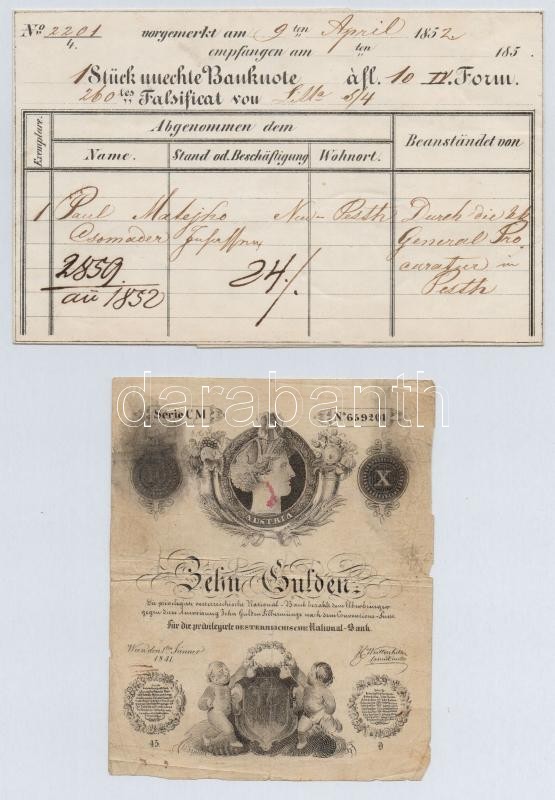 No 2201/4. vorgemerkt am 9ten April 1852
empfangen am ten 185
1 Stück unechte Banknote à fl. 10 IV. Form.
260tes Falsificat von 5/4
Exemplare.
Abgenommen dem
Beanständet von
Name. Stand od. Beschäftigung Wohnort.
1 Paul Matejko Neu-Pesth Durch die k.k.
Csomader General Pro
2859 24/. curatur in
au 1852 Pesth
darabanth
Serie CM No 659201
X
AUSTRIA
Zehn Gulden.
Die privilegirte oesterreichische National-Bank bezahlt dem Überbringer
gegen diese Anweisung Zehn Gulden Silbermünze nach dem Conventions-Fusse
Für die privilegirte OESTERREICHISCHE National-Bank.
Wien den 1ten Jänner
1841.
45 9